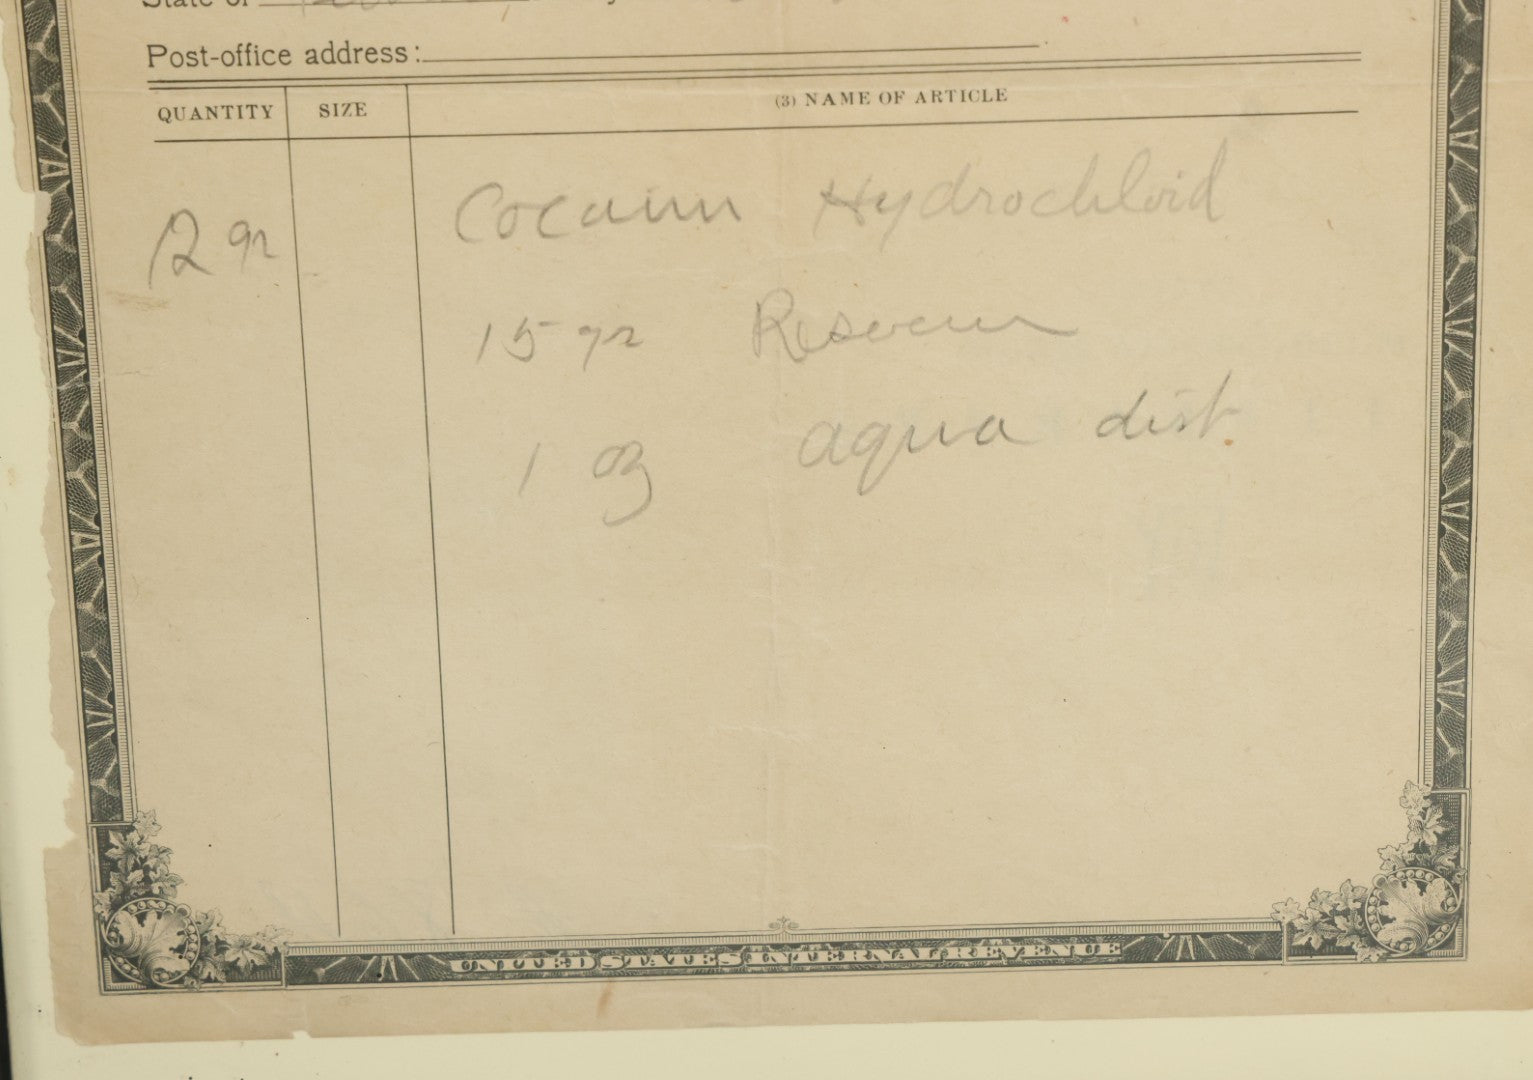 State of
Post-office address:
QUANTITY SIZE (3) NAME OF ARTICLE
2 gr Cocain Hydrochloid
15 gr
1 oz aqua dist.
UNITED STATES INTERNAL REVENUE